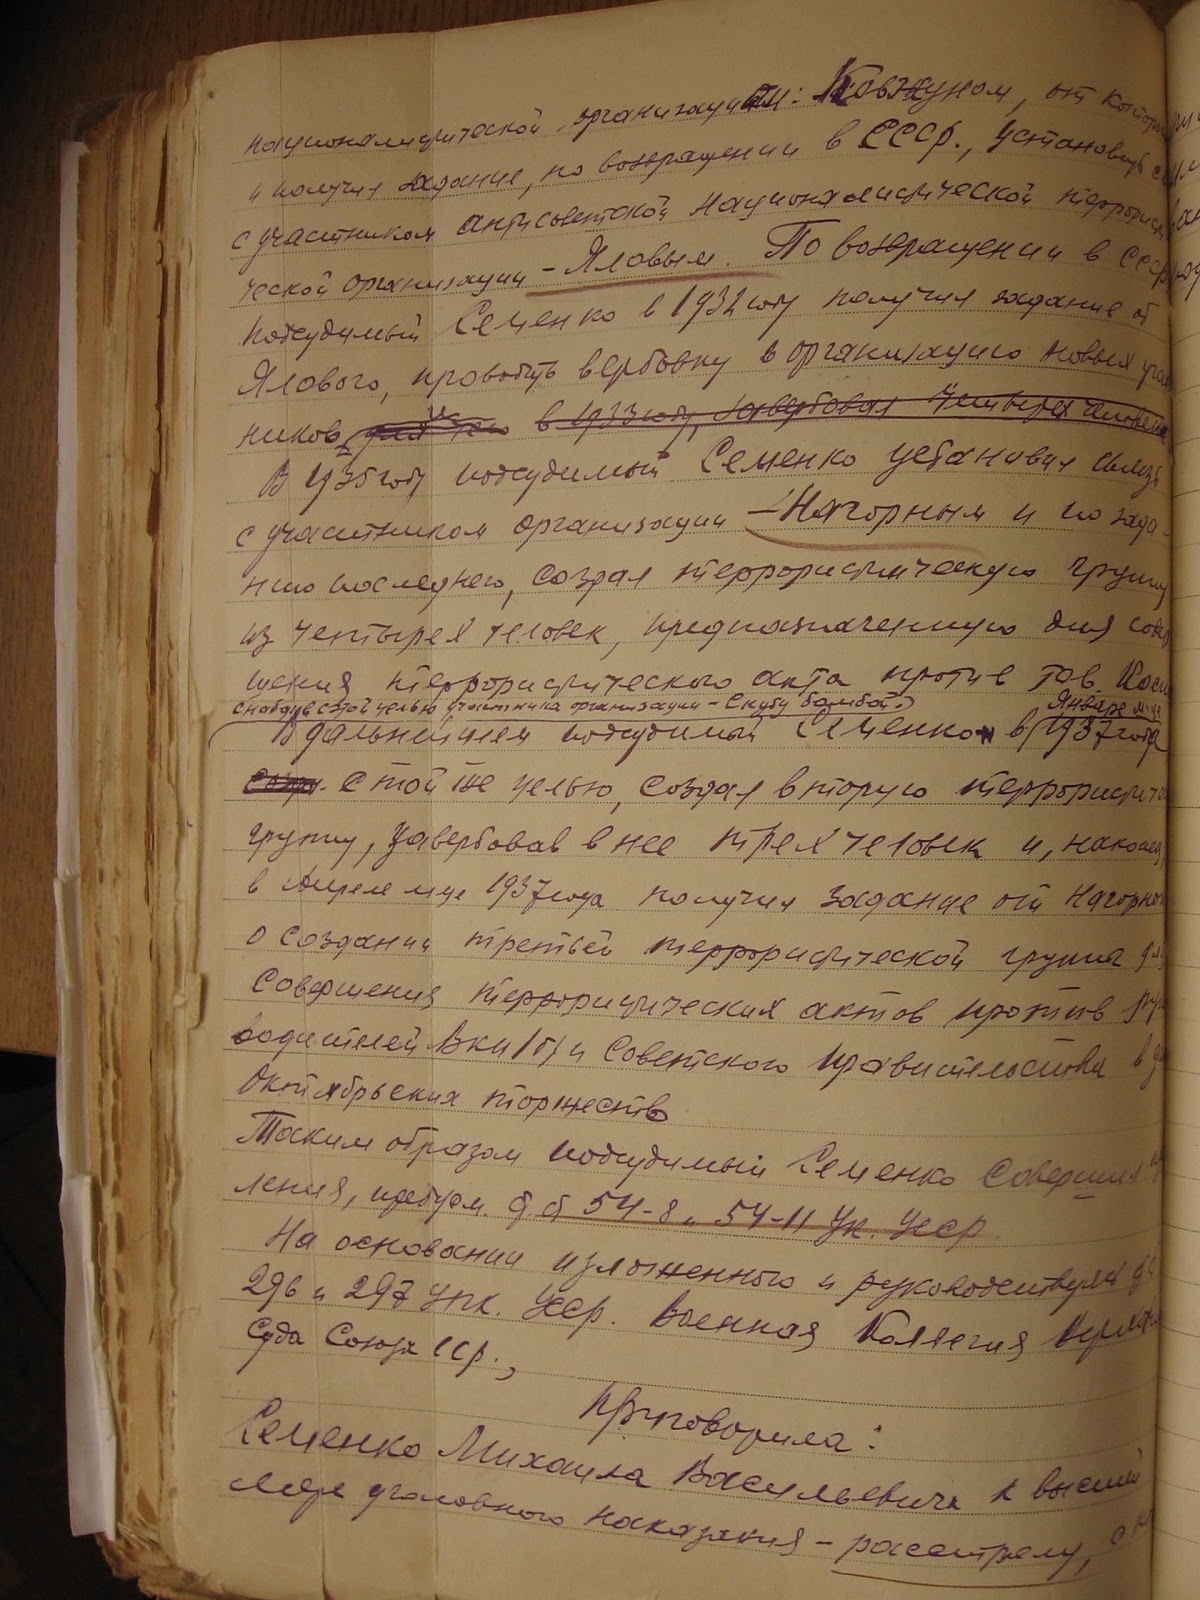 националистической организации: Ковжуном, от которого
и получил задание, по возвращении в СССР., установить
с участником антисоветской националистической террористи
ческой организации – Яловым. По возвращении в СССР
подсудимый Семенко в 1932 году получил задание от
Ялового, проводить вербовку в организацию новых участ
ников, в 1933 году, завербовал четырех человек
В 1935 году подсудимый Семенко установил связь
с участником организации – Нагорным и по зада-
нию последнего, создал террористическую группу
из четырех человек, предназначенную для совер
шения террористического акта против тов. Косио
снабдив с этой целью участника организации – Скубу бомбой.
Январе м-це
В дальнейшем подсудимый Семенко в 1937 года
с той же целью, создал вторую террористиче
группу, завербовав в нее трех человек и, наконец,
в Апреле м-це 1937 года получил задание от Нагорного
о создании третьей террористической группы для
совершения террористических актов против рук
водителей ВКП/б/ и Советского правительства в дни
Октябрьских торжеств
Таким образом подсудимый Семенко совершил
ления, предусм. ст. ст 54-8 и 54-11 Ук. УССР
На основании изложенного и руководствуясь
296 и 297 УПК. УССР. Военная Коллегия Верховн
Суда Союза ССР.,
Приговорила:
Семенко Михаила Васильевича к высшей
мере уголовного наказания – расстрелу, с